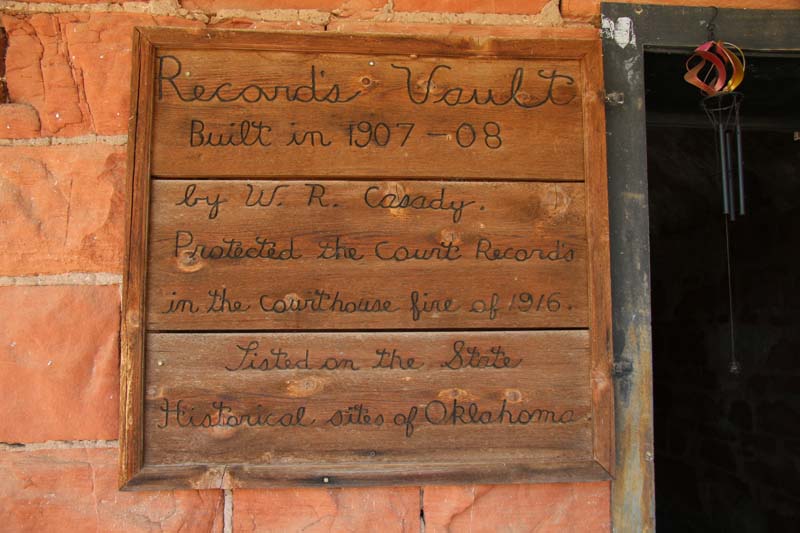 Record's Vault
Built in 1907-08
by W. R. Casady.
Protected the Court Record's
in the courthouse fire of 1916.
Listed on the State
Historical sites of Oklahoma